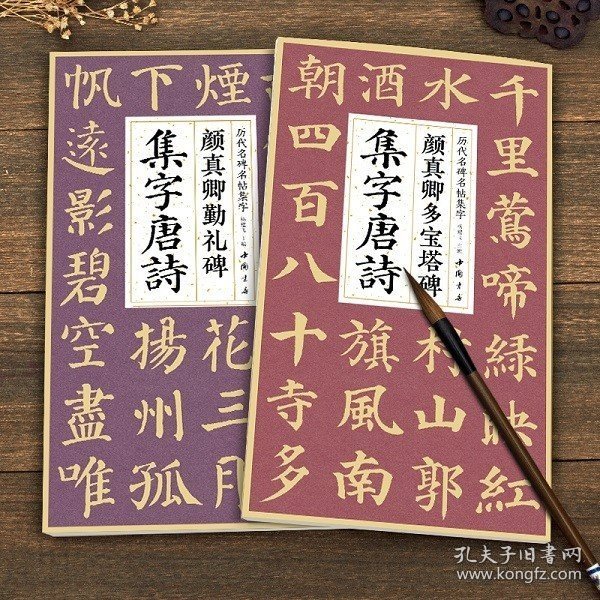 煙花三月
下揚州孤
帆遠影碧空盡唯
历代名碑名帖集字
主编
颜真卿勤礼碑
集字唐詩
中国书店
千里鶯啼綠映紅
水村山郭
酒旗風南
朝四百八十寺多
历代名碑名帖集字
主编
颜真卿多宝塔碑
集字唐詩
中国书店
孔夫子旧书网
www.kongfz.com